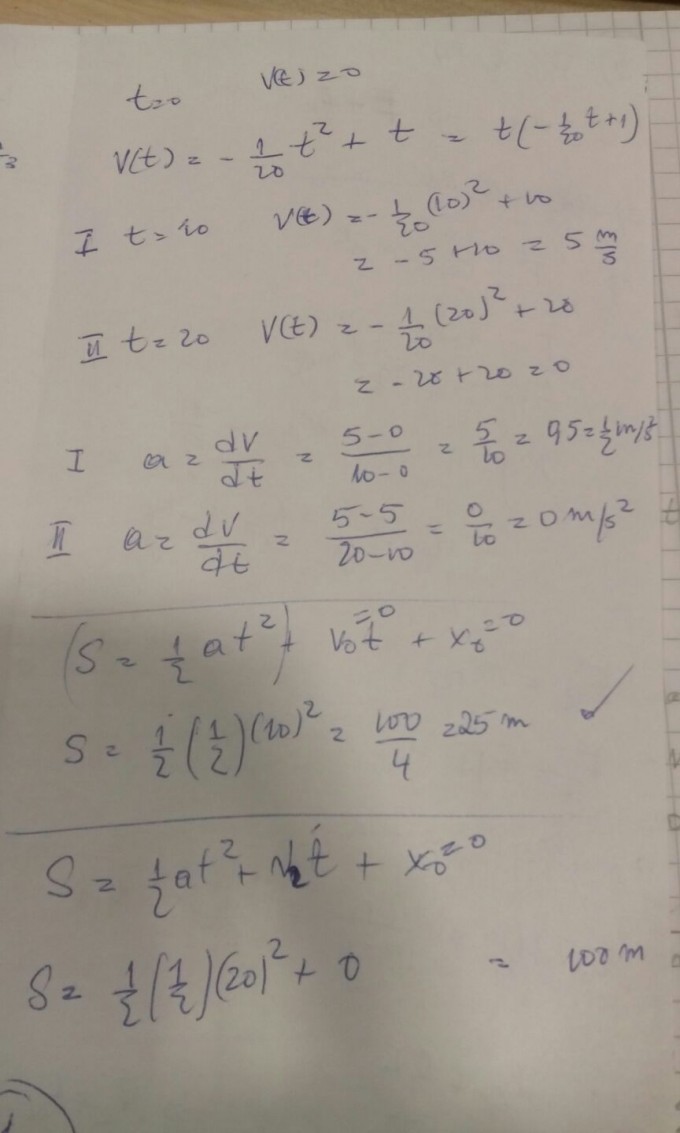 t=0 V(t)=0
V(t) = - 1/20 t² + t = t(- 1/20 t+1)
I t=10 V(t) = - 1/20 (10)² + 10
= -5+10 = 5 m/s
II t=20 V(t) = - 1/20 (20)² + 20
= -20+20=0
I a = dV/dt = 5-0/10-0 = 5/10 = 0,5 = 1/2 m/s²
II a = dV/dt = 5-5/20-10 = 0/10 = 0 m/s²
(S = 1/2 at²) + V₀t=0 + x₀=0
S = 1/2 (1/2)(10)² = 100/4 = 25 m ✓
S = 1/2 at² + V₂t + x₀=0
S = 1/2 (1/2)(20)² + 0 = 100 m